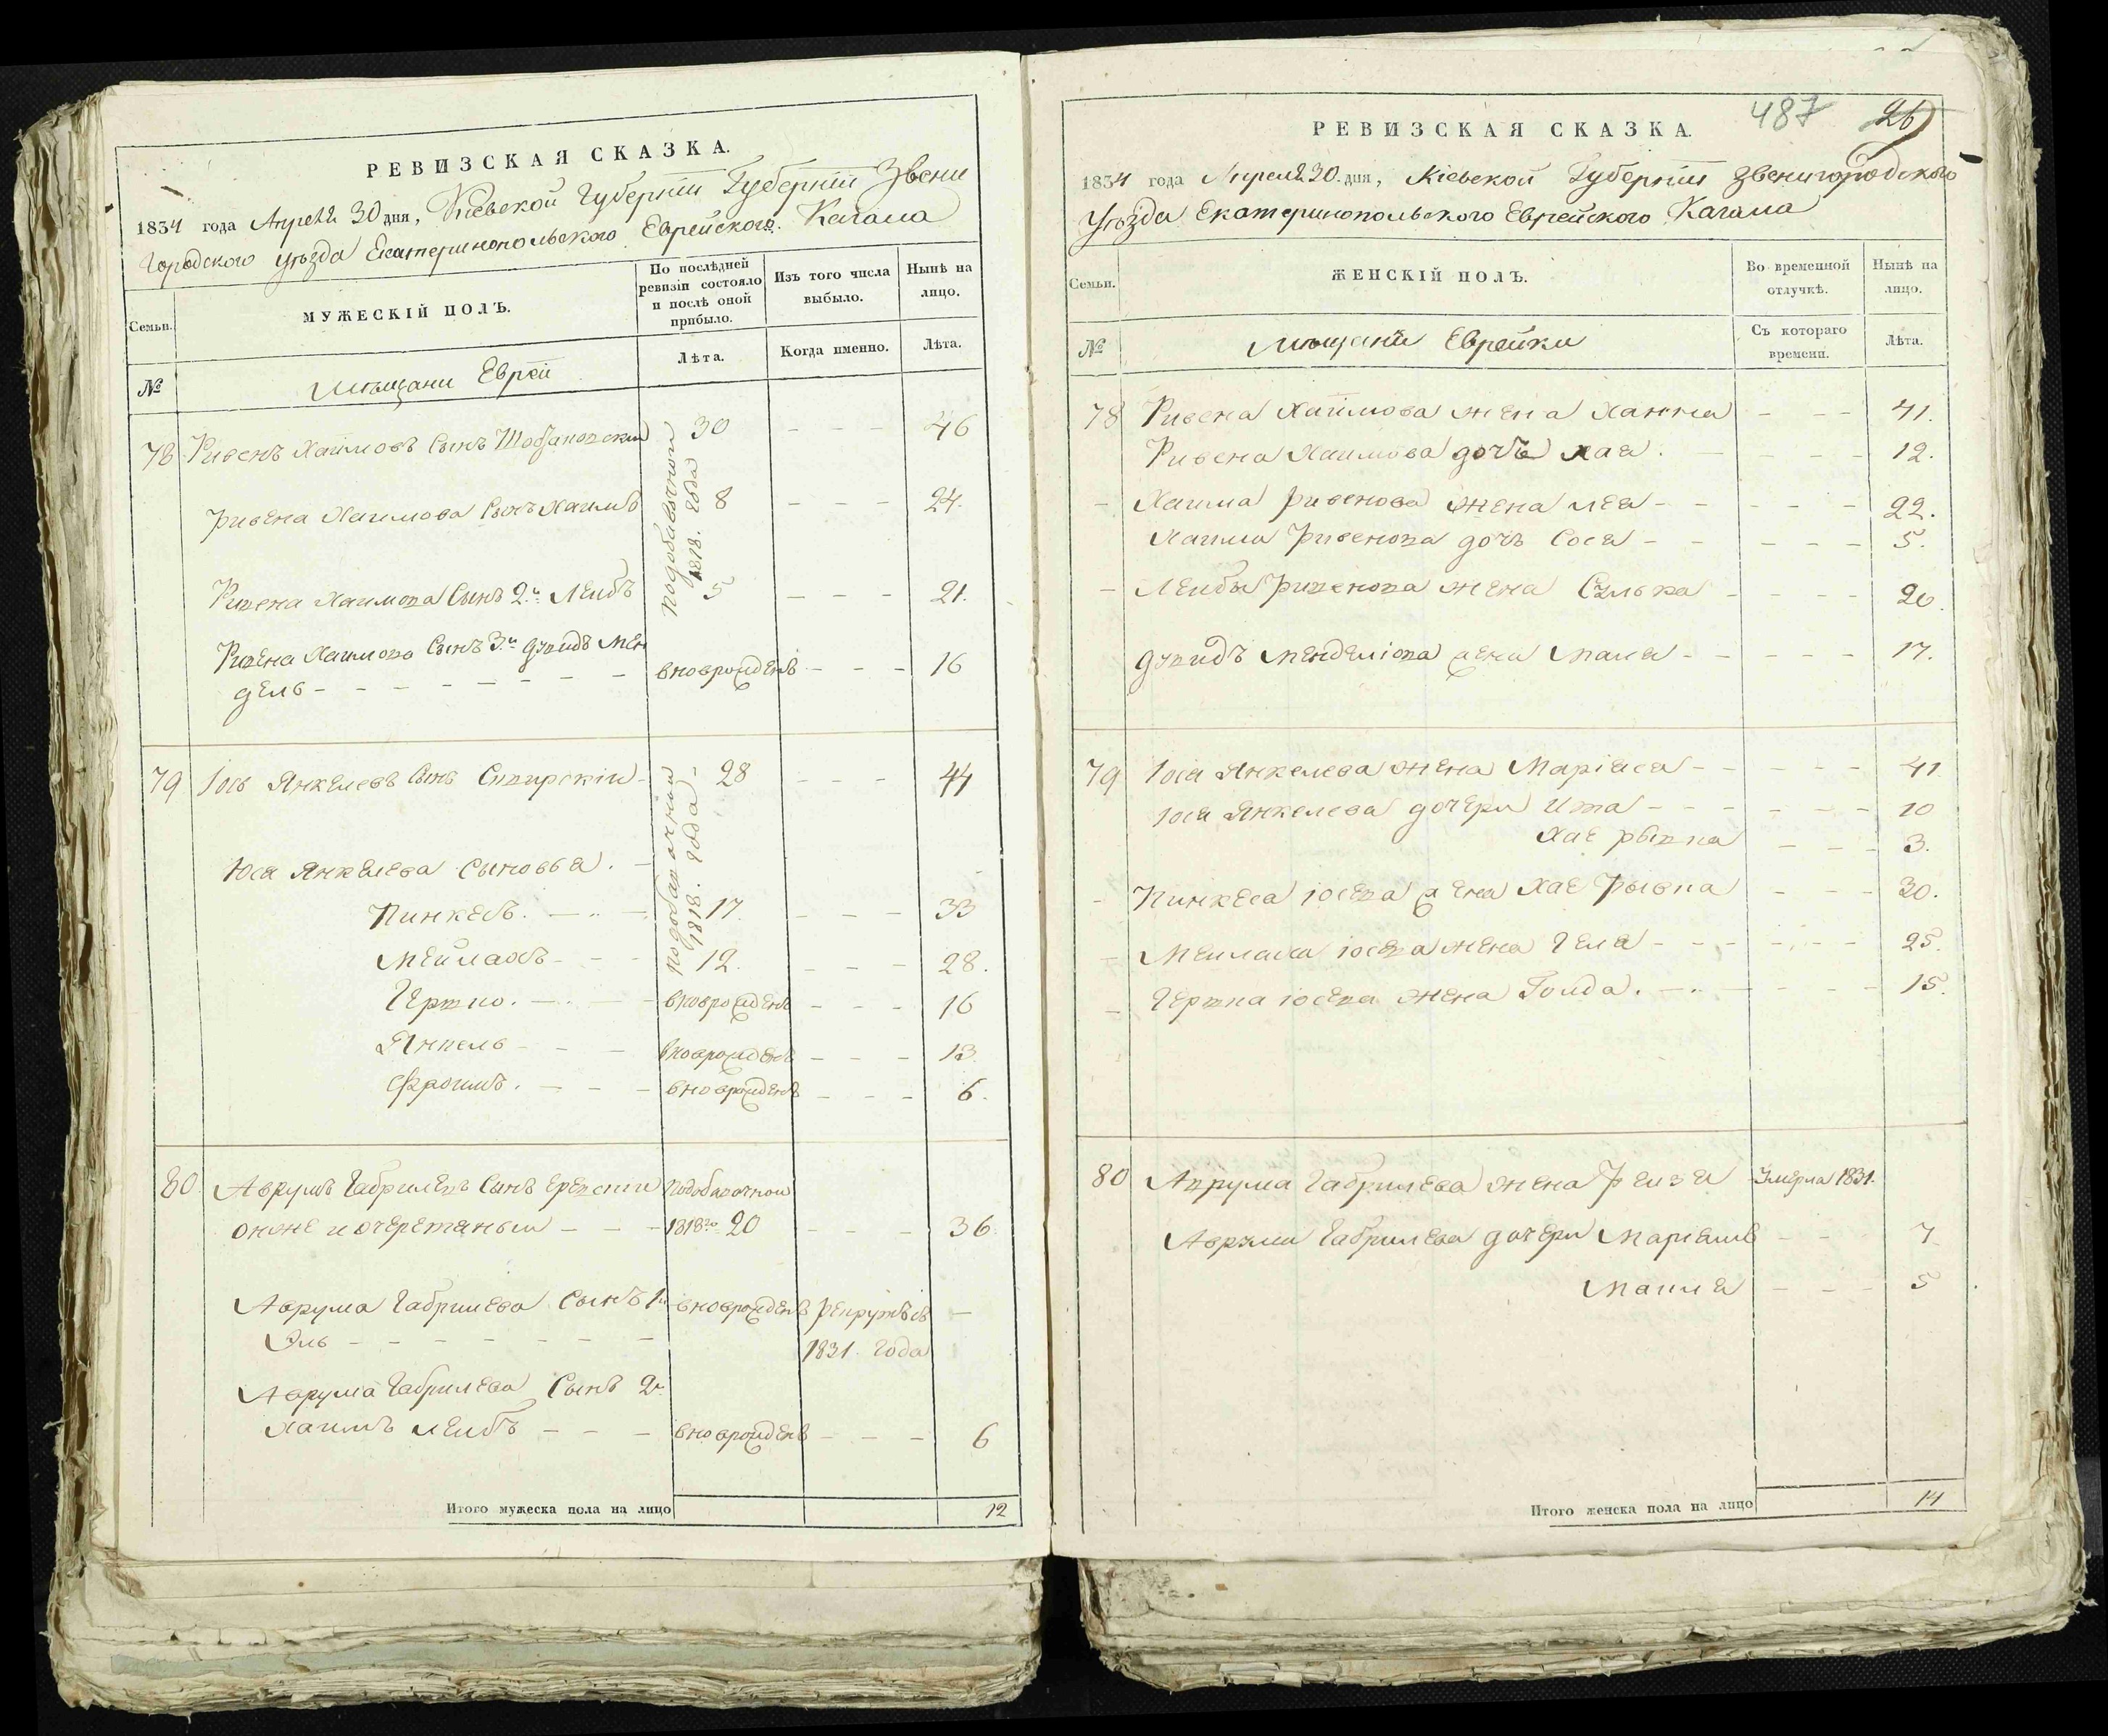 РЕВИЗСКАЯ СКАЗКА.
1834 года Апреля 30 дня, Кіевской Губерніи Губерніи Звени
городского уѣзда Екатеринопольского Еврейского Кагала
Семьи.
МУЖЕСКІЙ ПОЛЪ.
По послѣдней ревизіи состояло и послѣ оной прибыло.
Изъ того числа выбыло.
Нынѣ на лицо.
№
Мѣщани Евреи
Лѣта.
Когда именно.
Лѣта.
78 Ривенъ Хаимовъ Сынъ 30 - - - 46
подобавочной 1818. года
Ривена Хаимова Сынъ Хаимъ 8 - - - 24.
Ривена Хаимова Сынъ 2й Лейбъ 5 - - - 21.
Ривена Хаимова Сынъ 3й Дувидъ Мен
дель - - - - - - - - вноврожденъ - - - 16
79 Іось Янкелевъ Сынъ Сивирскій - 28 - - - 44
подобавочной 1818. года
Іося Янкелева Сыновья. -
Пинкесъ. - - 17. - - - 33
Мейлахъ - - - 12. - - - 28.
Гершко. - - - вноврожденъ - - - 16
Янкель - - - вноврожденъ - - - 13.
Фроимъ. - - - вноврожденъ - - - 6.
80. Аврумъ Габрилевъ Сынъ подобавочной
онже и Очеретяный - - - 1818го 20 - - - 36.
Аврума Габрилева Сынъ 1й вноврожденъ рекрутъ въ -
Эль - - - - - - - 1831. года
Аврума Габрилева Сынъ 2й
Хаимъ Лейбъ - - - вноврожденъ - - - 6
Итого мужеска пола на лицо 12
487 26
РЕВИЗСКАЯ СКАЗКА.
1834 года Апреля 30. дня, Кіевской Губерніи Звенигородского
Уѣзда Екатеринопольского Еврейского Кагала
Семьи.
ЖЕНСКІЙ ПОЛЪ.
Во временной отлучкѣ.
Нынѣ на лицо.
№
Мѣщани Еврейки
Съ котораго времени.
Лѣта.
78 Ривена Хаимова жена Ханна - - - 41.
Ривена Хаимова дочь Хая. - - - - 12.
- Хаима Ривенова жена Лея - - - - - 22.
Хаима Ривенова дочь Сося - - - - - 5.
- Лейбы Ривенова жена Сулька - - - - 20.
Дувидъ Менделіова жена Маля - - - - - 17.
79 Іося Янкелева жена Маріася - - - - - 41
Іося Янкелева дочери Ита - - - - - - 10
Хае Рывка - - - 3.
- Пинкеса Іосева жена Хае Рывка - - - 30.
- Мейлаха Іосева жена Геля - - - - - - 25.
- Гершка Іосева жена Голда. - - - - - 15.
80 Аврума Габрилева жена Рейзя Умерла 1831.
Аврума Габрилева дочери Маріемъ - - - 7
Малия - - - 5
Итого женска пола на лицо 14